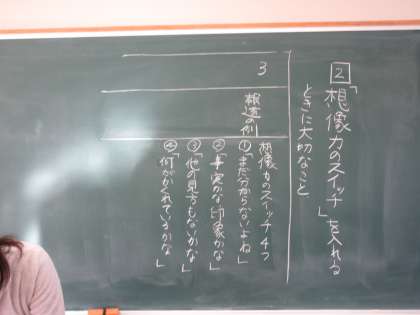 2 「想像力のスイッチ」を入れる
ときに大切なこと
3
報道の例
想像力のスイッチ4つ
①「まだ分からないよね」
②「事実かな印象かな」
③「他の見方もないかな」
④「何がかくれているかな」